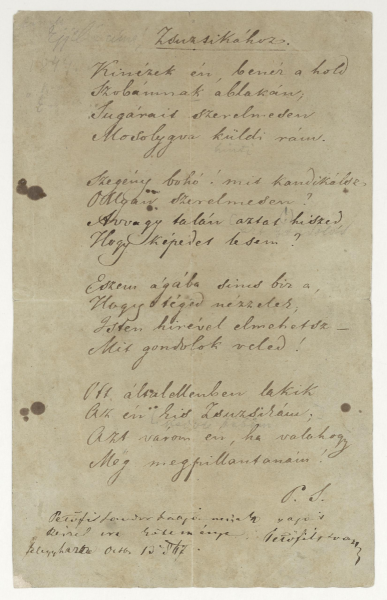 Zsuzsikához.
Kinézek én, benéz a hold
Szobámnak ablakán;
Sugárait szerelmesen
Mosolygva küldi rám.
Szegény bohó! mit kandikálsz
Ollyan szerelmesen?
Avvagy talán aztat hiszed,
Hogy képedet lesem?
Eszem ágába sincs biz a,
Hogy téged nézzelek,
Isten hirével elmehetsz –
Mit gondolok veled!
Ott általellenben lakik
Az én kis Zsuzsikám;
Azt várom én, ha valahogy
Még megpillantanám!
P. S.
Petőfi Sandor
Petőfi István
Octob 15